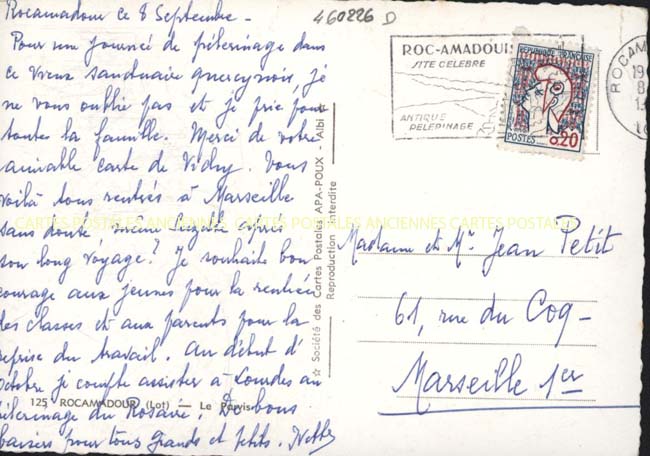 Rocamadour ce 8 Septembre -
Pour une journée de pèlerinage dans
ce vieux sanctuaire quercynois, je
ne vous oublie pas et je prie pour
toute la famille. Merci de votre
aimable carte de Vichy. Vous
voilà tous rentrés à Marseille
sans doute même après
son long voyage? Je souhaite bon
courage aux jeunes pour la rentrée
des classes et aux parents pour la
reprise du travail. Au début d'
octobre je compte assister à Lourdes au
pèlerinage du Rosaire. De bons
baisers pour tous grands et petits.
125 ROCAMADOUR (Lot) — Le Parvis
☆ Société des Cartes Postales APA-POUX - Albi
Reproduction Interdite
460226 D
ROC-AMADOUR
SITE CELEBRE
ANTIQUE
PELERINAGE
REPUBLIQUE FRANÇAISE
POSTES
0,20
ROCAM
19
8
Madame et Mr Jean Petit
61, rue du Coq -
Marseille 1er
CARTES POSTALES ANCIENNES CARTES POSTALES ANCIENNES CARTES POSTALES